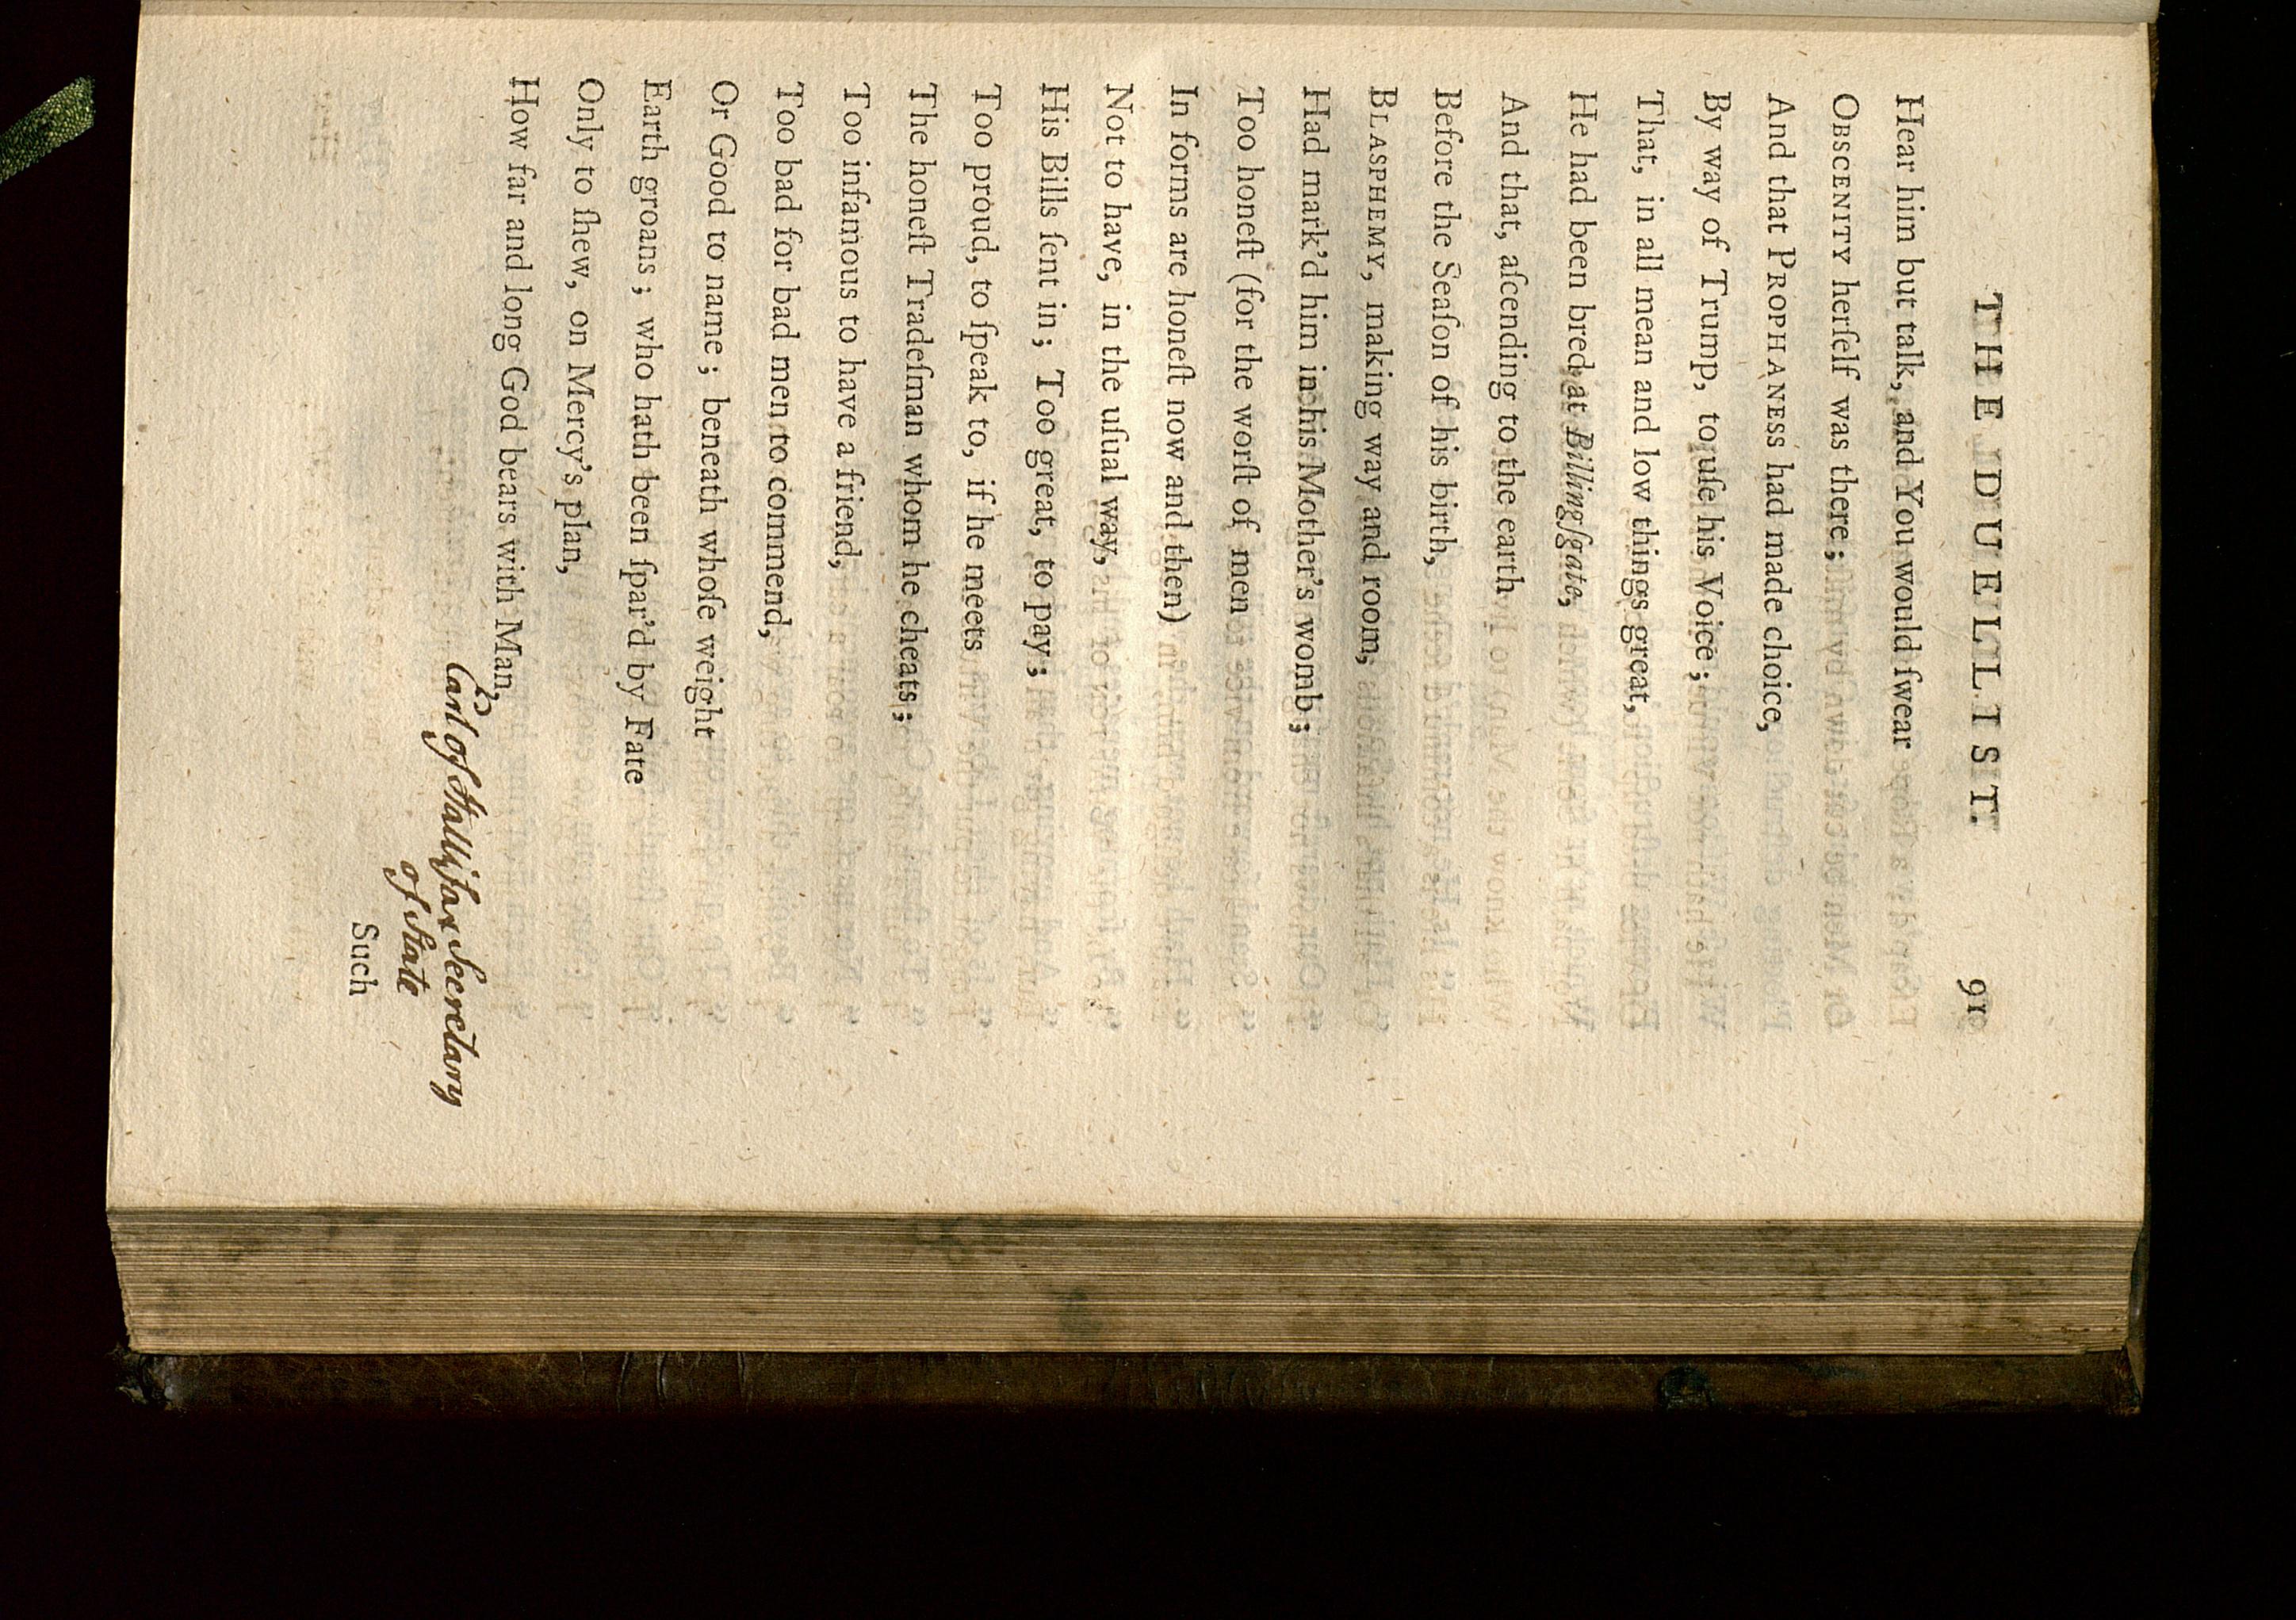 THE DUELLIST. 91
Hear him but talk, and You would ſwear
OBSCENITY herſelf was there;
And that PROPHANESS had made choice,
By way of Trump, to uſe his Voice;
That, in all mean and low things great,
He had been bred at Billingſgate,
And that, aſcending to the earth
Before the Seaſon of his birth,
BLASPHEMY, making way and room,
Had mark'd him in his Mother's womb;
Too honeſt (for the worſt of men
In forms are honeſt now and then)
Not to have, in the uſual way,
His Bills ſent in; Too great, to pay;
Too proud, to ſpeak to, if he meets
The honeſt Tradeſman whom he cheats;
Too infamous to have a friend,
Too bad for bad men to commend,
Or Good to name; beneath whoſe weight
Earth groans; who hath been ſpar'd by Fate
Only to ſhew, on Mercy's plan,
How far and long God bears with Man.
Earl of Hallifax Secretary
of State
Such